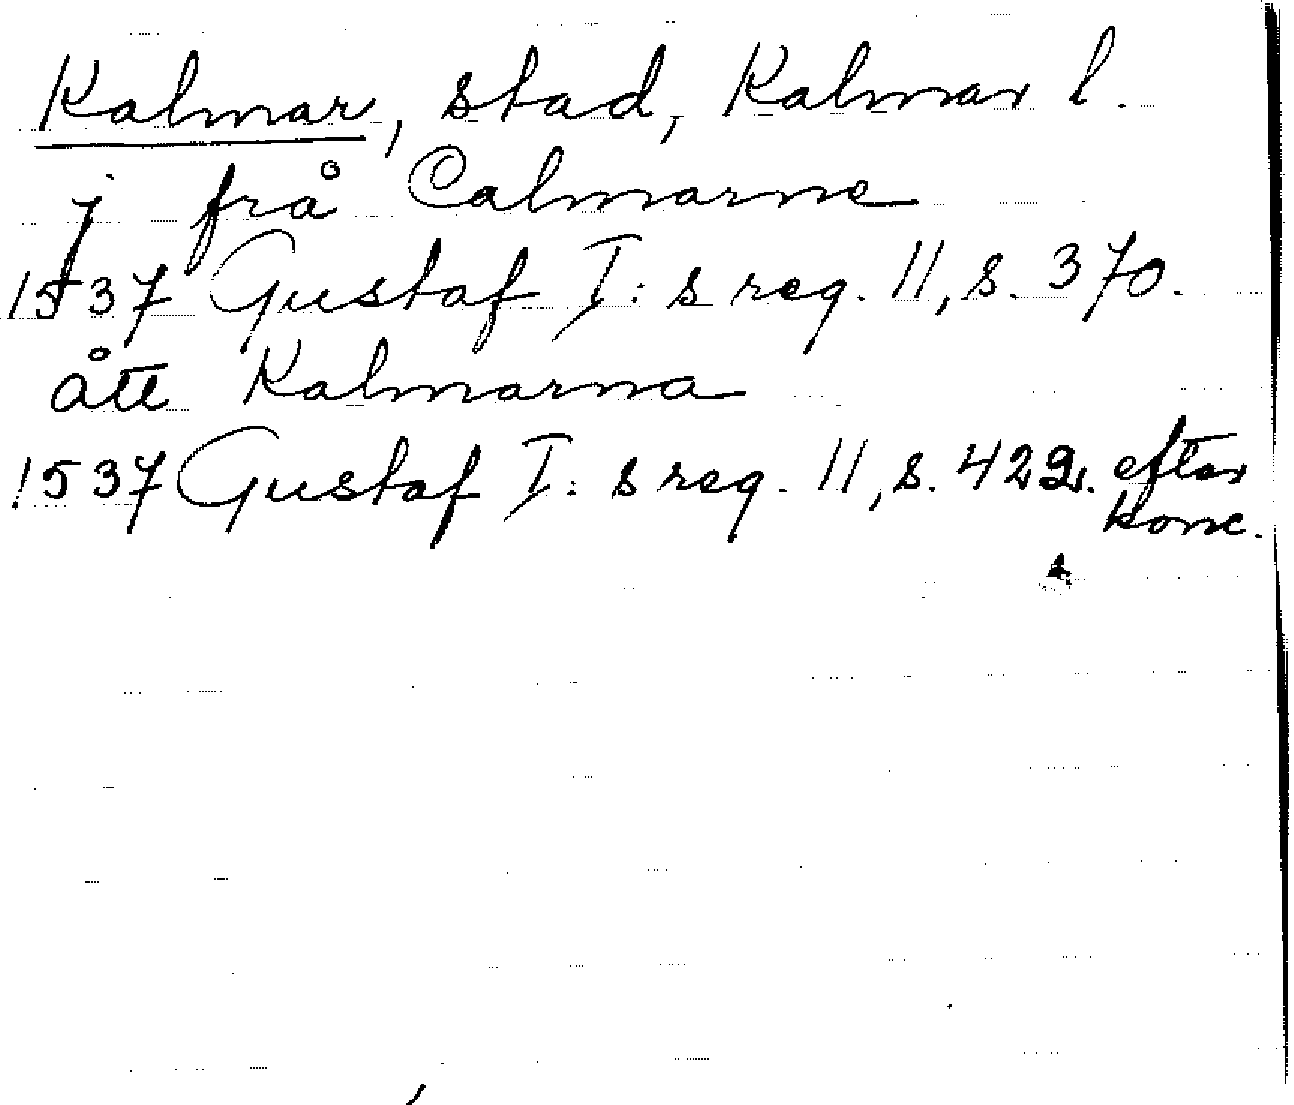 Kalmar, stad, Kalmar l.
j frå Calmarne
1537 Gustaf I: s reg. 11, s. 370.
ått Kalmarna
1537 Gustaf I: s reg. 11, s. 422. efter
konc.